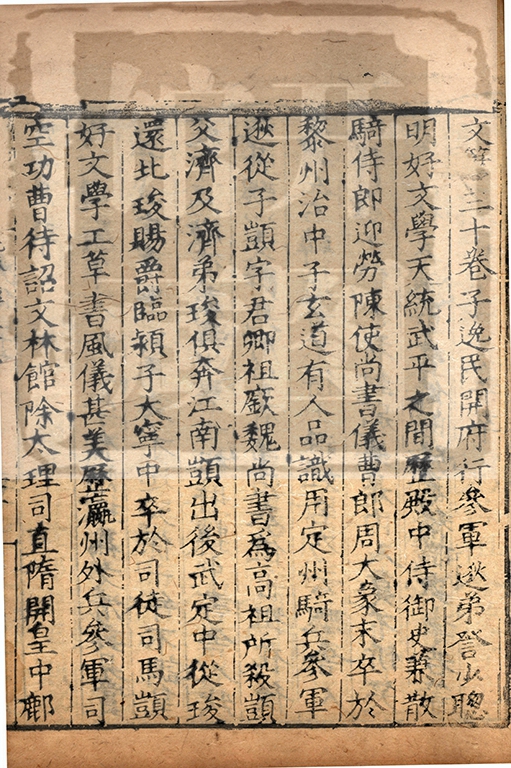 文筆三十卷子逸民開府行參軍逖弟登少聰
明好文學天統武平之間歷殿中侍御史兼散
騎侍郎迎勞陳使尚書儀曹郎周大象末卒於
黎州治中子玄道有人品識用定州騎兵參軍
逖從子顗字君卿祖㪨魏尚書為高祖所殺顗
父濟及濟弟琁俱奔江南顗出後武定中從琁
還北琁賜爵臨潁子大寧中卒於司徒司馬顗
好文學工草書風儀甚美歷瀛州外兵參軍司
空功曹待詔文林館除太理司直隋開皇中鄜